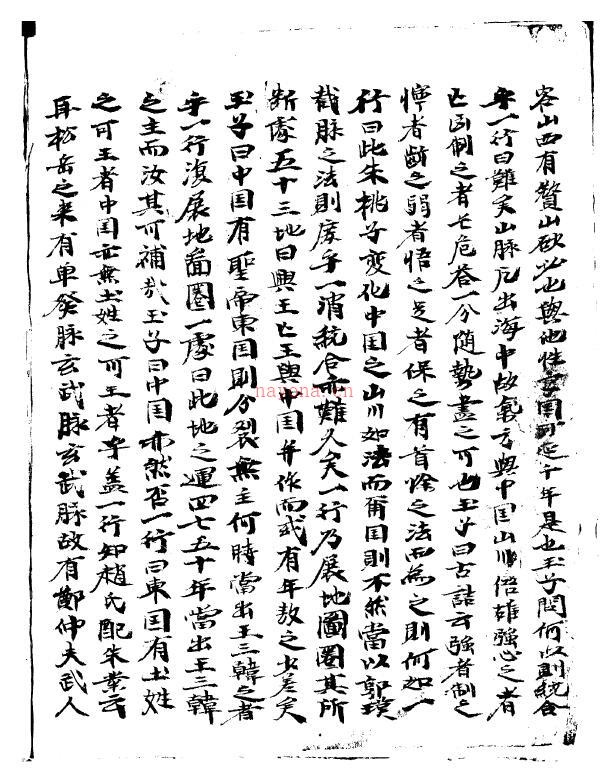 客山西有贅山砍必也與他性享国可延千年是也玉子問何以則統合
乎一行曰難矣山脉凡出海中故氣方與中国山川倍雄強心之者
亡凶制之者亡危答一分随勢盡之可也玉子曰古詰云強者制之
獰者齗之弱者悟之足者保之有首烩之法而為之則何如一
行曰此朱桃子变化中国之山川如法而爾国則不然當以郭璞
截脉之法則庶乎一消統合亦難久矣一行乃展地圖圈其所
断處五十三地曰興王亡王與中国并作而或有年数之少差矣
玉子曰中国有聖帝東国則分裂無主何時當出王三韓之者
乎一行復展地圖圈一處曰此地之運四七五十年當出王三韓
之主而汝其可補哉玉子曰中国亦然否一行曰東国有土姓
之可王者中国亦無土姓之可王者乎盖一行知趙氏配朱業云
耳松岳之来有单癸脉玄武脉玄武脉故有鄭仲夫武人
nayena.net